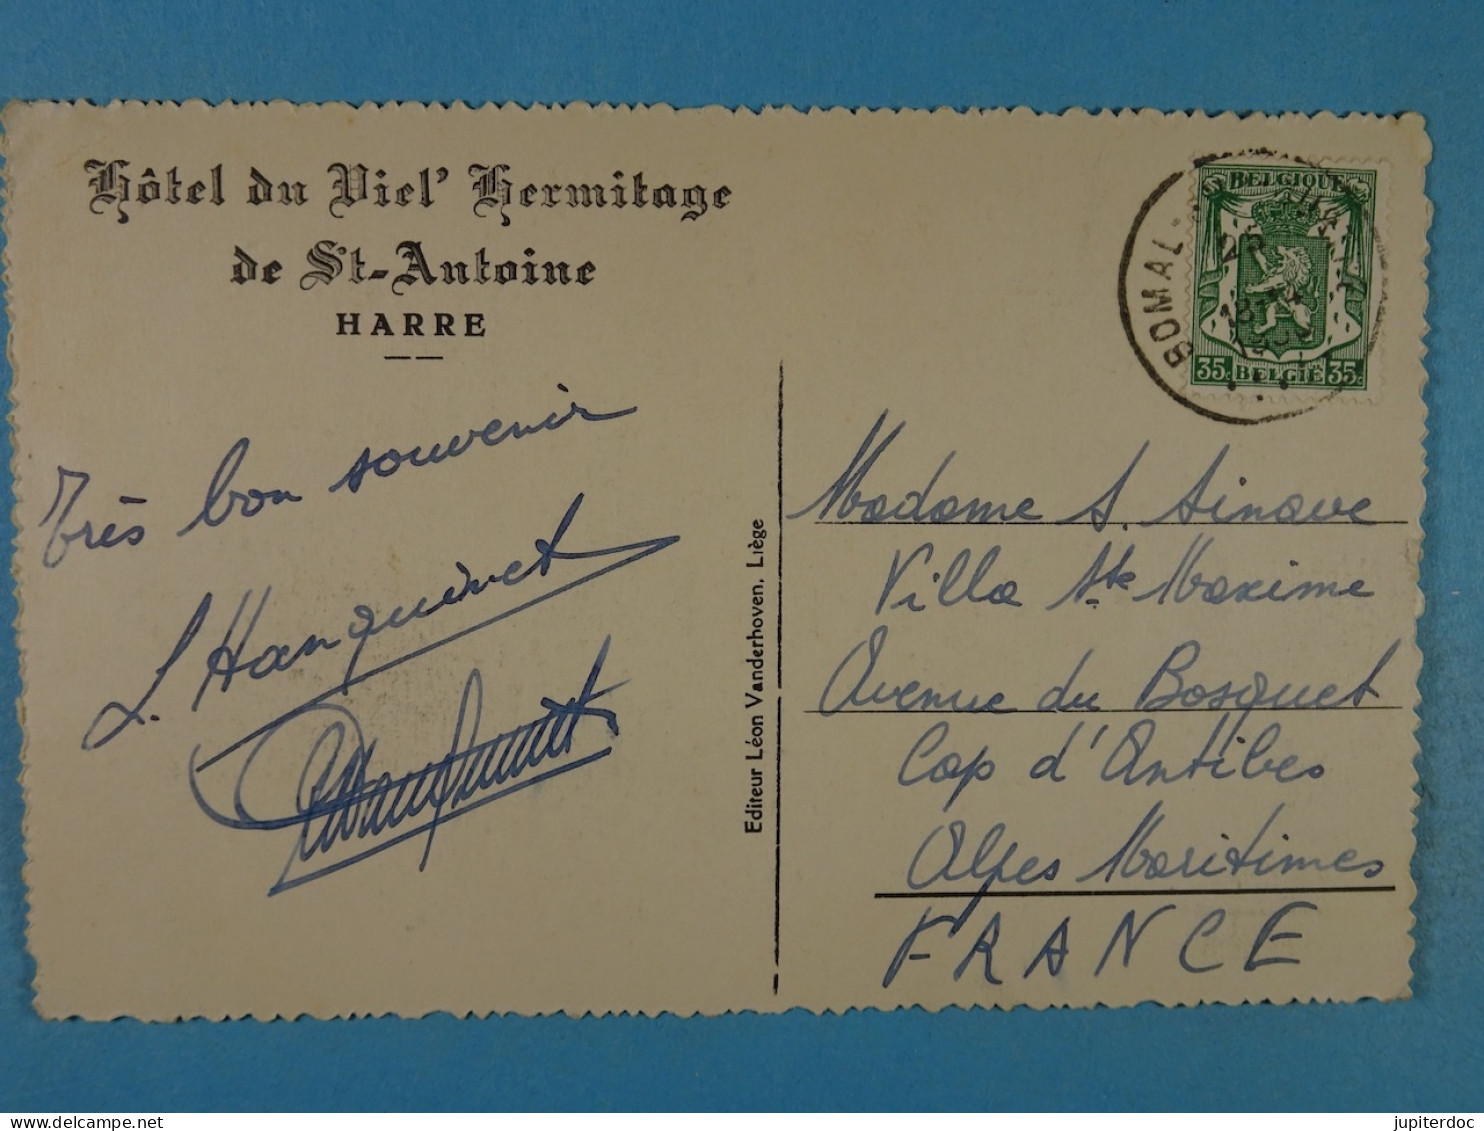 Hôtel du Viel' Hermitage
de St-Antoine
HARRE
Très bon souvenir
L. Hanquinet
Editeur Léon Vanderhoven, Liège
BOMAL
18
BELGIQUE
35c BELGIË 35c
Madame S. Sinave
Villa Ste Maxime
Avenue du Bosquet
Cap d'Antibes
Alpes Maritimes
FRANCE
jupiterdoc